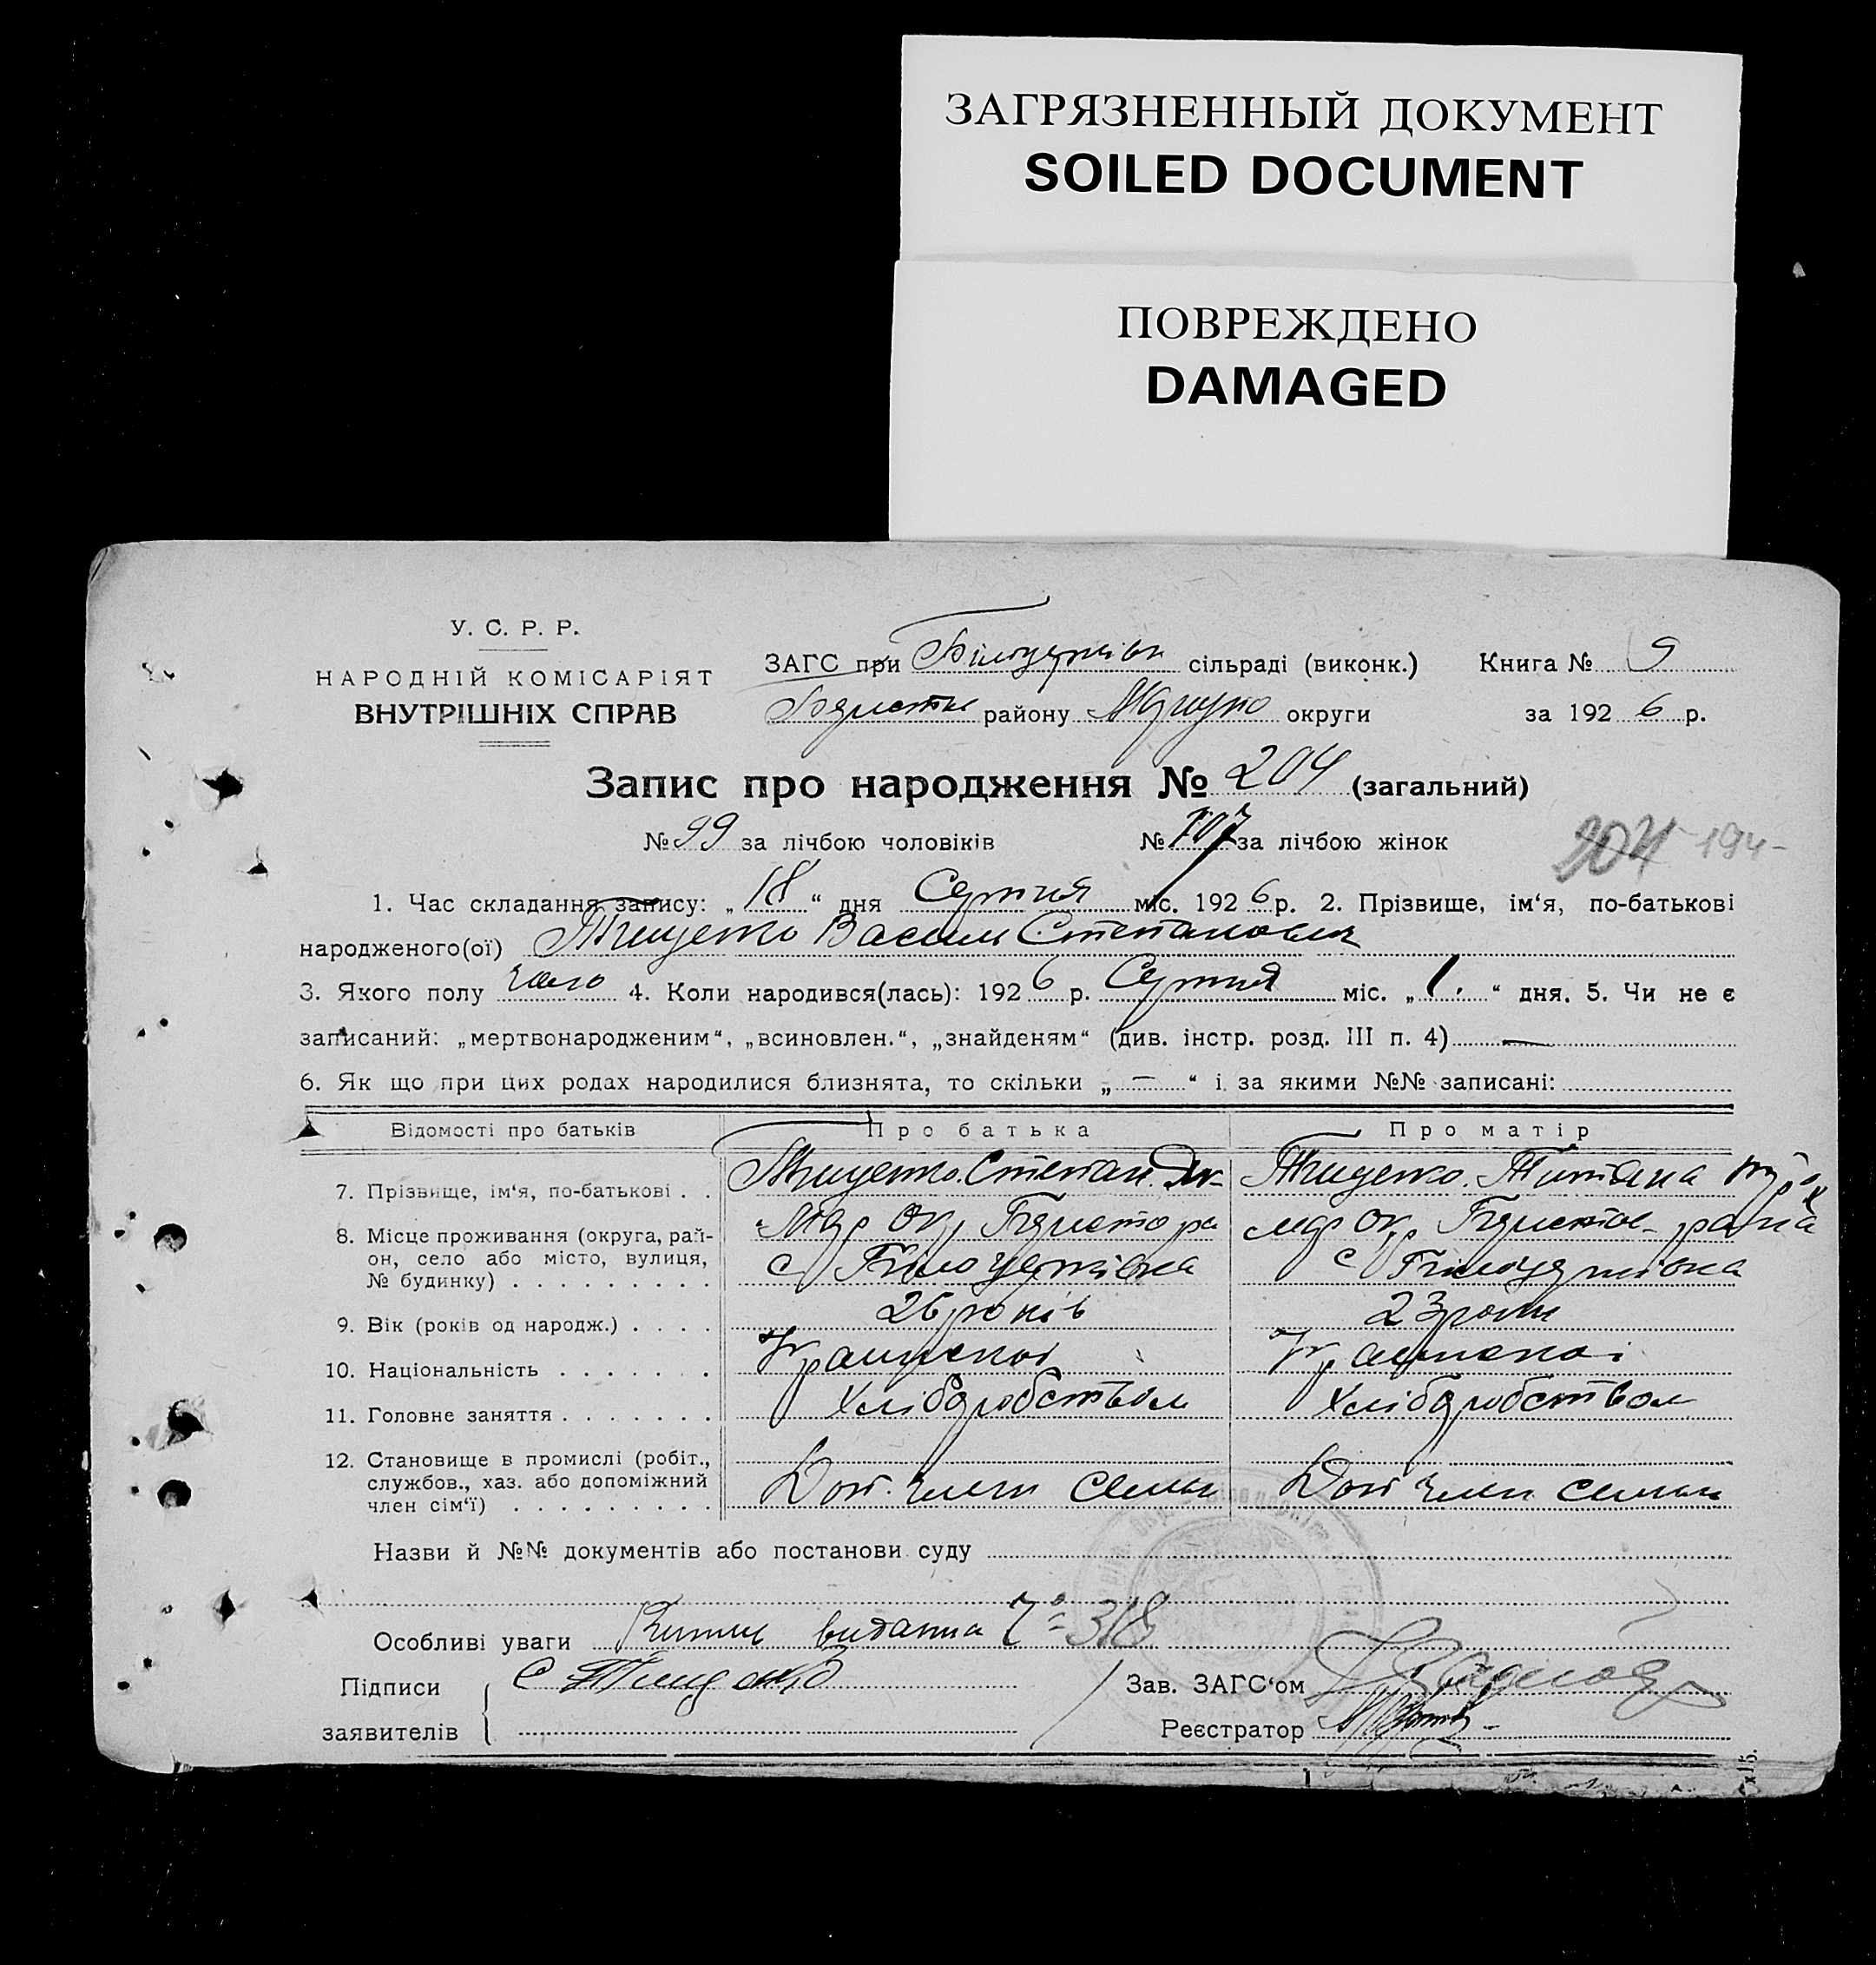 ЗАГРЯЗНЕННЫЙ ДОКУМЕНТ
SOILED DOCUMENT
ПОВРЕЖДЕНО
DAMAGED
У. С. Р. Р.
НАРОДНІЙ КОМІСАРІЯТ
ВНУТРІШНІХ СПРАВ
ЗАГС при Білоцерків сільраді (виконк.) Книга № 9
району округи за 1926 р.
Запис про народження № 204 (загальний)
№ 99 за лічбою чоловіків № 107 за лічбою жінок
204 194-
1. Час складання запису: „18“ дня Серпня міс. 1926 р. 2. Прізвище, ім‘я, по-батькові
народженого(ої) Тищенко Василь Степанович
3. Якого полу чоло 4. Коли народився(лась): 1926 р. Серпня міс. „1.“ дня. 5. Чи не є
записаний: „мертвонародженим“, „всиновлен.“, „знайденям“ (див. інстр. розд. III п. 4) —
6. Як що при цих родах народилися близнята, то скільки „—“ і за якими №№ записані:
Відомості про батьків Про батька Про матір
7. Прізвище, ім‘я, по-батькові . . Тищенко Степан Тищенко
8. Місце проживання (округа, рай-
он, село або місто, вулиця,
№ будинку) . . . . . . . . . с Білоцерківка с Білоцерківка
9. Вік (років од народж.) . . . . 26 років 23 роки
10. Національність . . . . . . .
11. Головне заняття . . . . . . . Хліборобством Хліборобством
12. Становище в промислі (робіт.,
службов., хаз. або допоміжний
член сім‘ї) . . . . . . . . . Доп. член семьи Доп член семьи
Назви й №№ документів або постанови суду
Особливі уваги видатна 318
Підписи С Тищенко Зав. ЗАГС‘ом
заявителів Реєстратор